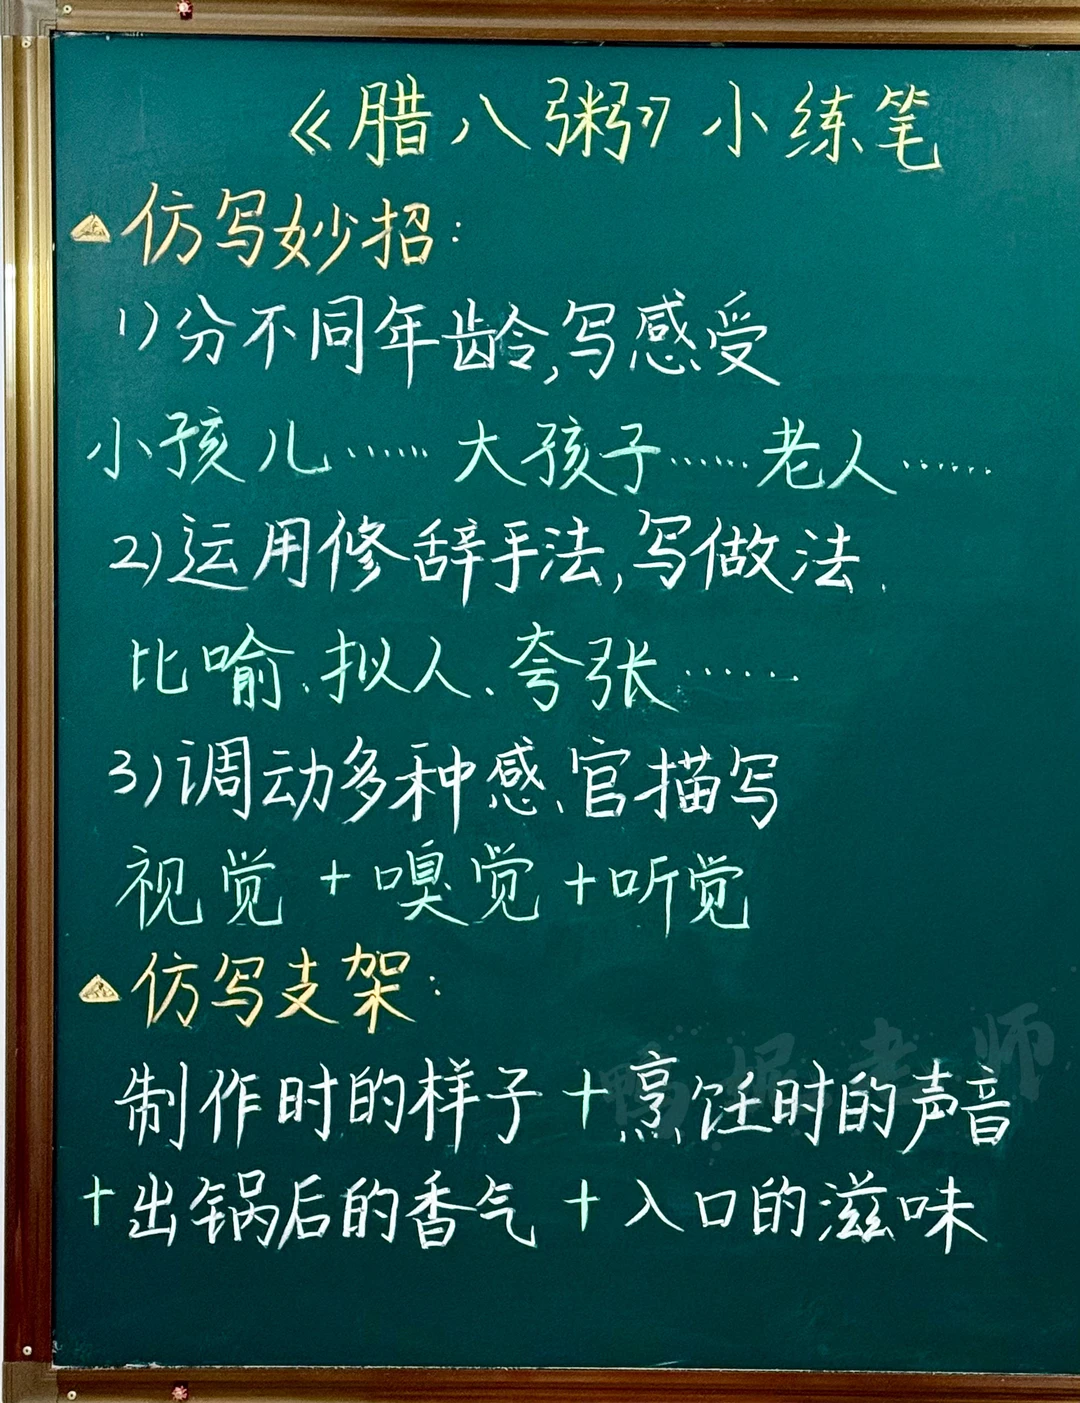 《腊八粥》小练笔
仿写妙招：
1)分不同年龄,写感受
小孩儿……大孩子……老人……
2)运用修辞手法,写做法.
比喻、拟人、夸张……
3)调动多种感官描写
视觉+嗅觉+听觉
仿写支架：
制作时的样子+烹饪时的声音
+出锅后的香气+入口的滋味
老师